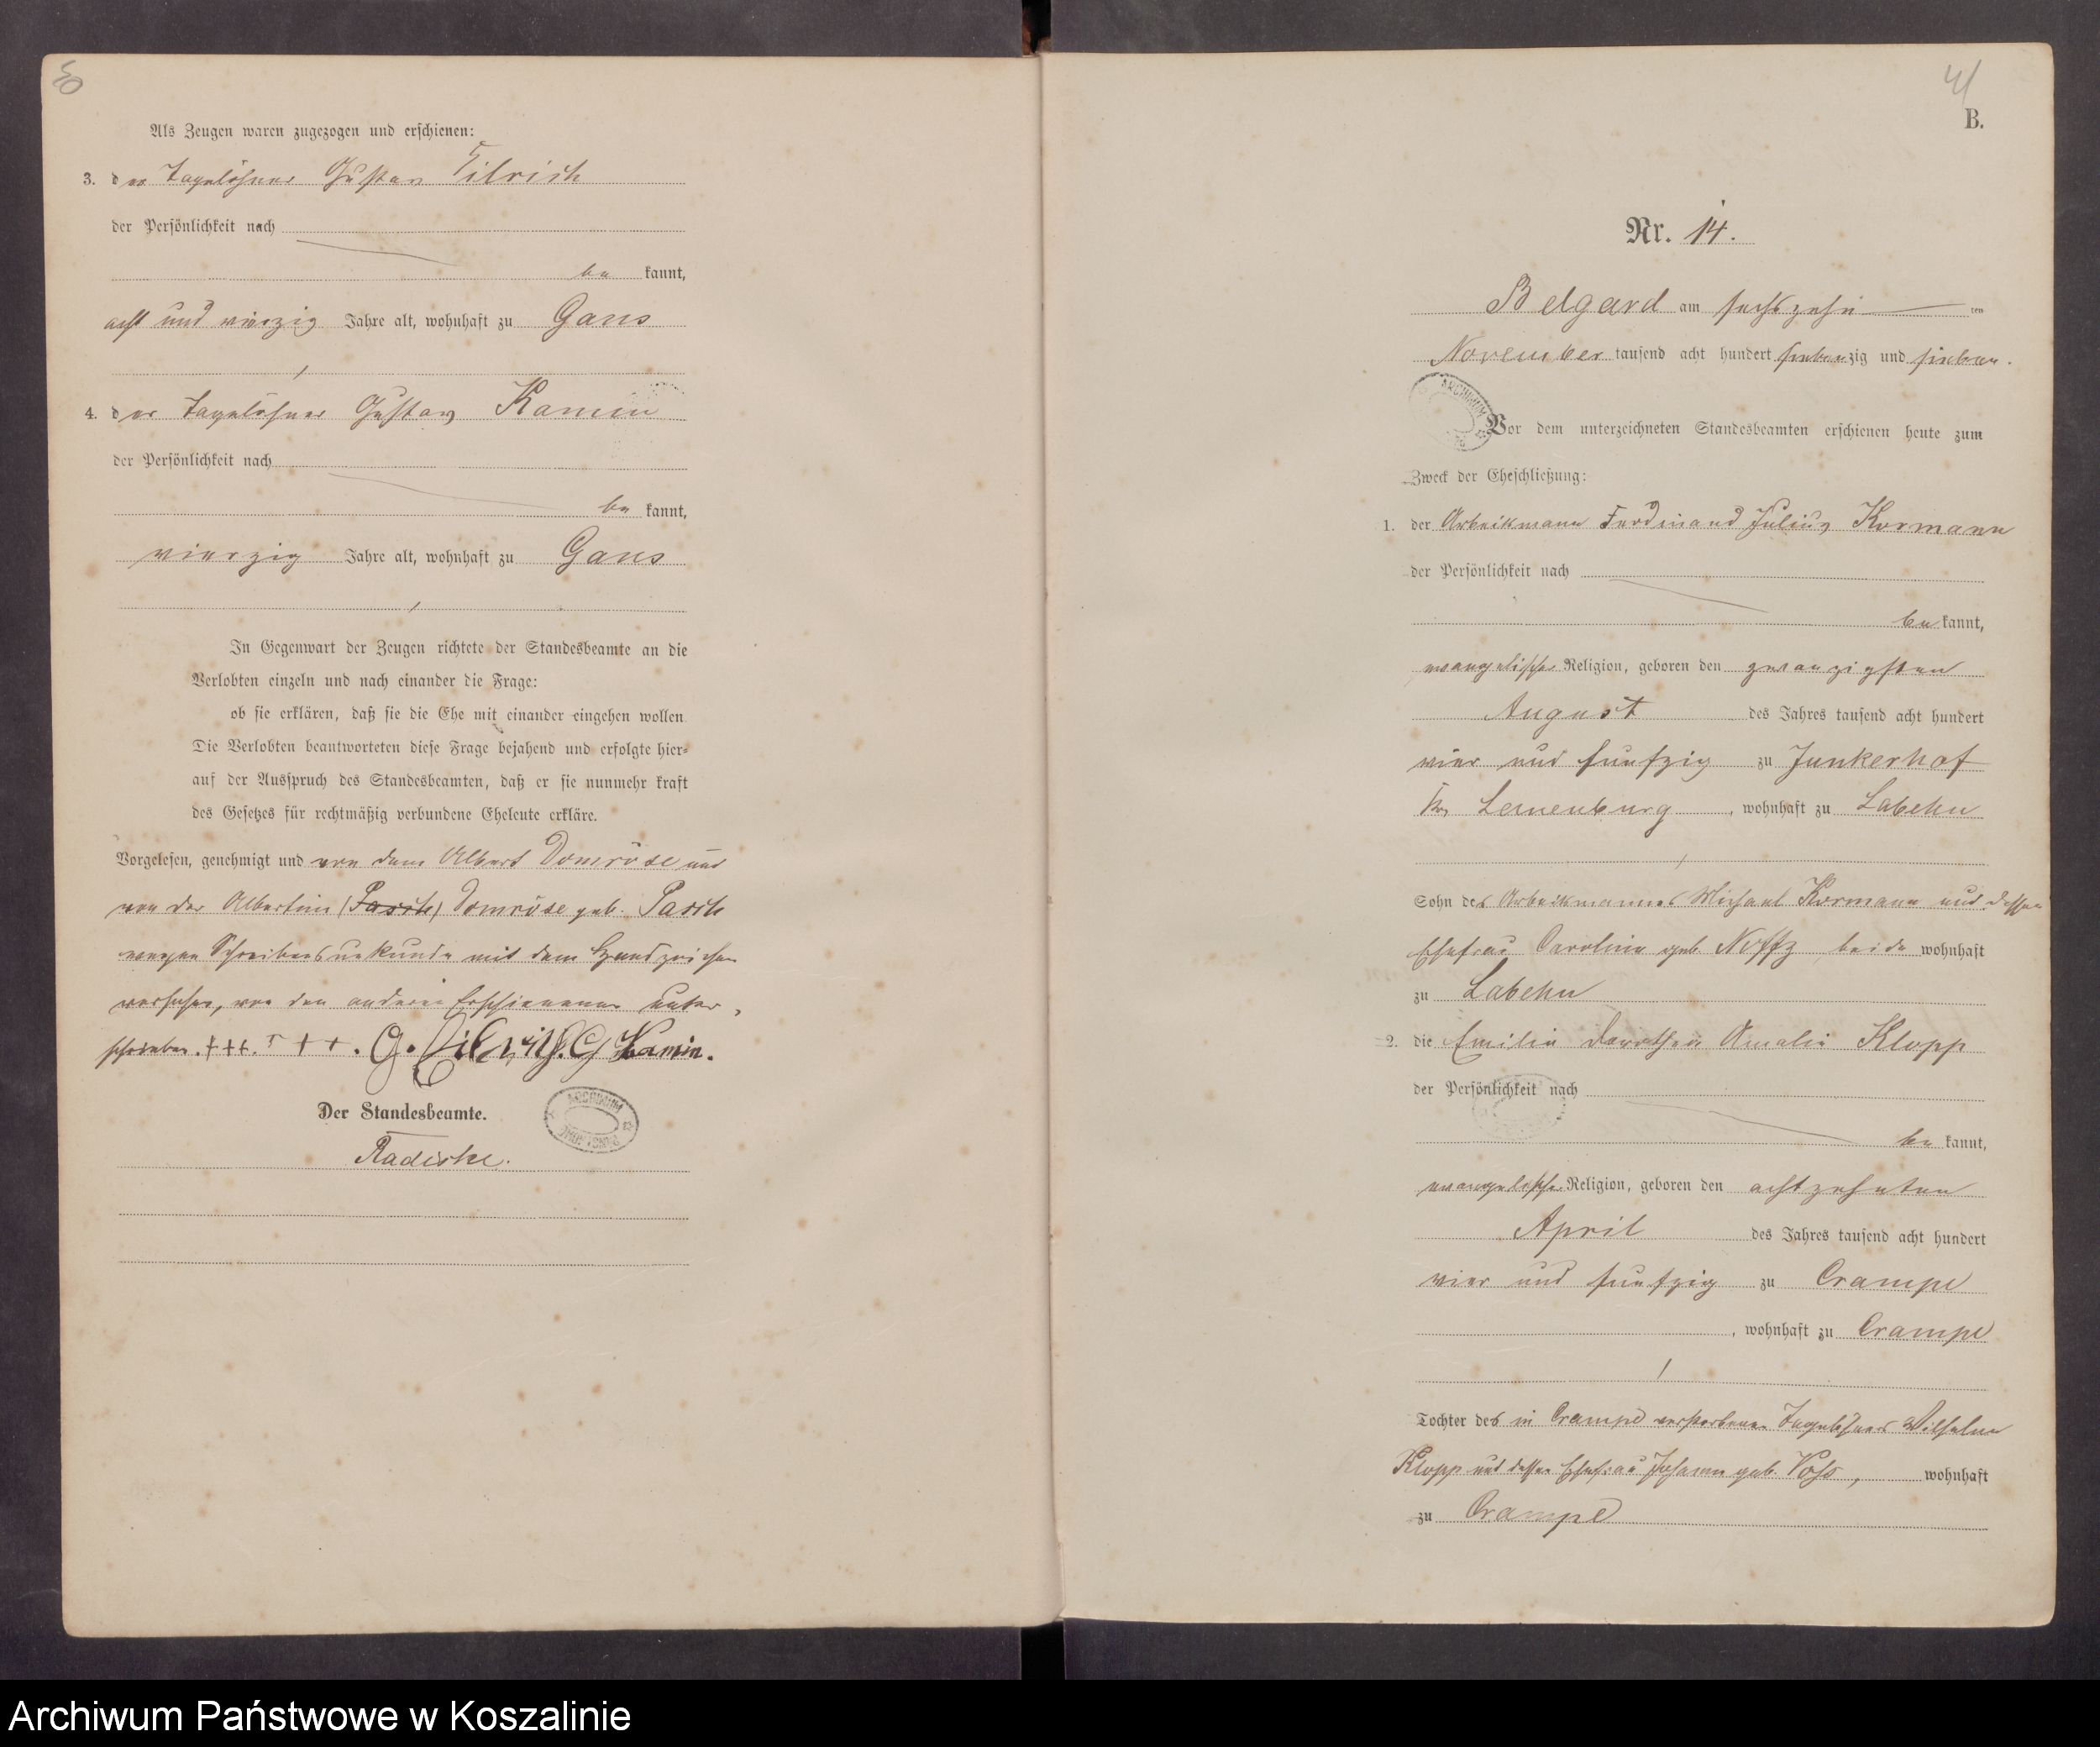 Als Zeugen waren zugezogen und erschienen:
3. der Tagelöhner Gustav
der Persönlichkeit nach
be kannt,
acht und vierzig Jahre alt, wohnhaft zu Gans
4. der Tagelöhner Gustav Kamin
der Persönlichkeit nach
be kannt,
vierzig Jahre alt, wohnhaft zu Gans
In Gegenwart der Zeugen richtete der Standesbeamte an die
Verlobten einzeln und nach einander die Frage:
ob sie erklären, daß sie die Ehe mit einander eingehen wollen
Die Verlobten beantworteten diese Frage bejahend und erfolgte hier-
auf der Ausspruch des Standesbeamten, daß er sie nunmehr kraft
des Gesetzes für rechtmäßig verbundene Eheleute erkläre.
Vorgelesen, genehmigt und von dem Albert Domröse und
von der Albertine (Pasch) Domröse geb. Pasch
wegen Schreibensunkunde mit dem Handzeichen
versehen, von den anderen Erschienenen unter-
schrieben. +++. +++. G. G Kamin.
Der Standesbeamte.
Radeske.
ARCHIWUM
41
B.
Nr. 14.
Belgard am sechszehn ten
November tausend acht hundert siebenzig und sieben.
ARCHIWUM
Vor dem unterzeichneten Standesbeamten erschienen heute zum
Zweck der Eheschließung:
1. der Arbeitsmann Ferdinand Julius Kormann
der Persönlichkeit nach
be kannt,
evangelischer Religion, geboren den zwanzigsten
August des Jahres tausend acht hundert
vier und funfzig zu Junkerhof
Kr. Lauenburg, wohnhaft zu Labehn
Sohn des Arbeitsmannes Michael Kormann und dessen
Ehefrau Caroline geb. Noffz, beide wohnhaft
zu Labehn
2. die Emilie Dorothea Amalie Klopp
der Persönlichkeit nach
be kannt,
evangelischer Religion, geboren den achtzehnten
April des Jahres tausend acht hundert
vier und funfzig zu Crampe
, wohnhaft zu Crampe
Tochter des in Crampe verstorbenen Tagelöhners Wilhelm
Klopp und dessen Ehefrau Johanne geb. Voss, wohnhaft
zu Crampe
Archiwum Państwowe w Koszalinie